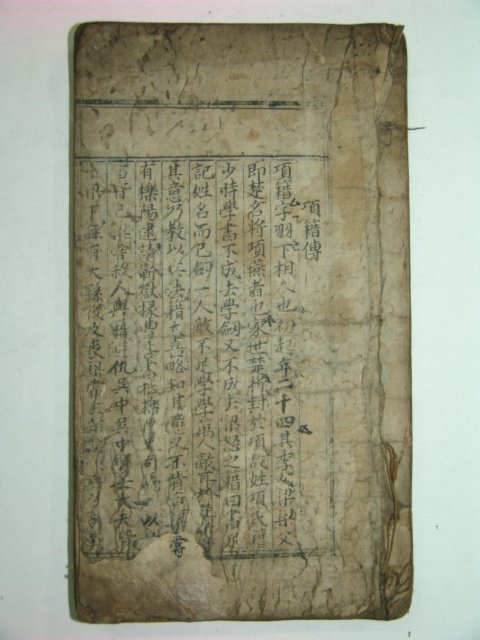 項籍傳
項籍字羽下相人也初起年二十四其季父梁梁父
即楚名將項燕者也家世楚將封於項故姓項氏籍
少時學書不成去學劒又不成去梁怒之籍曰書足
記姓名而已劒一人敵不足學學萬人敵耳於是
其意乃教以兵法籍大喜略知其意又不肯竟 嘗
有櫟陽逮請蘄獄掾曹咎書抵櫟陽 司馬 以
皆已 嘗殺人與籍 仇吳中吳中賢士大夫皆
下每有大繇役及喪梁常